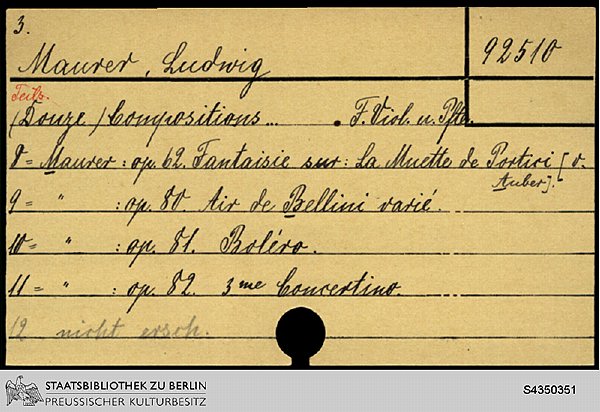 3.
Maurer, Ludwig
92510
Teils.
(Douze) Compositions... . F. Viol. u. Pfte.
8 = Maurer : op. 62. Fantaisie sur : La Muette de Portici [v.
Auber].
9 = " : op. 80. Air de Bellini varié.
10 = " : op. 81. Boléro.
11 = " : op. 82. 3me Concertino.
12 nicht ersch.
STAATSBIBLIOTHEK ZU BERLIN
PREUSSISCHER KULTURBESITZ
S4350351